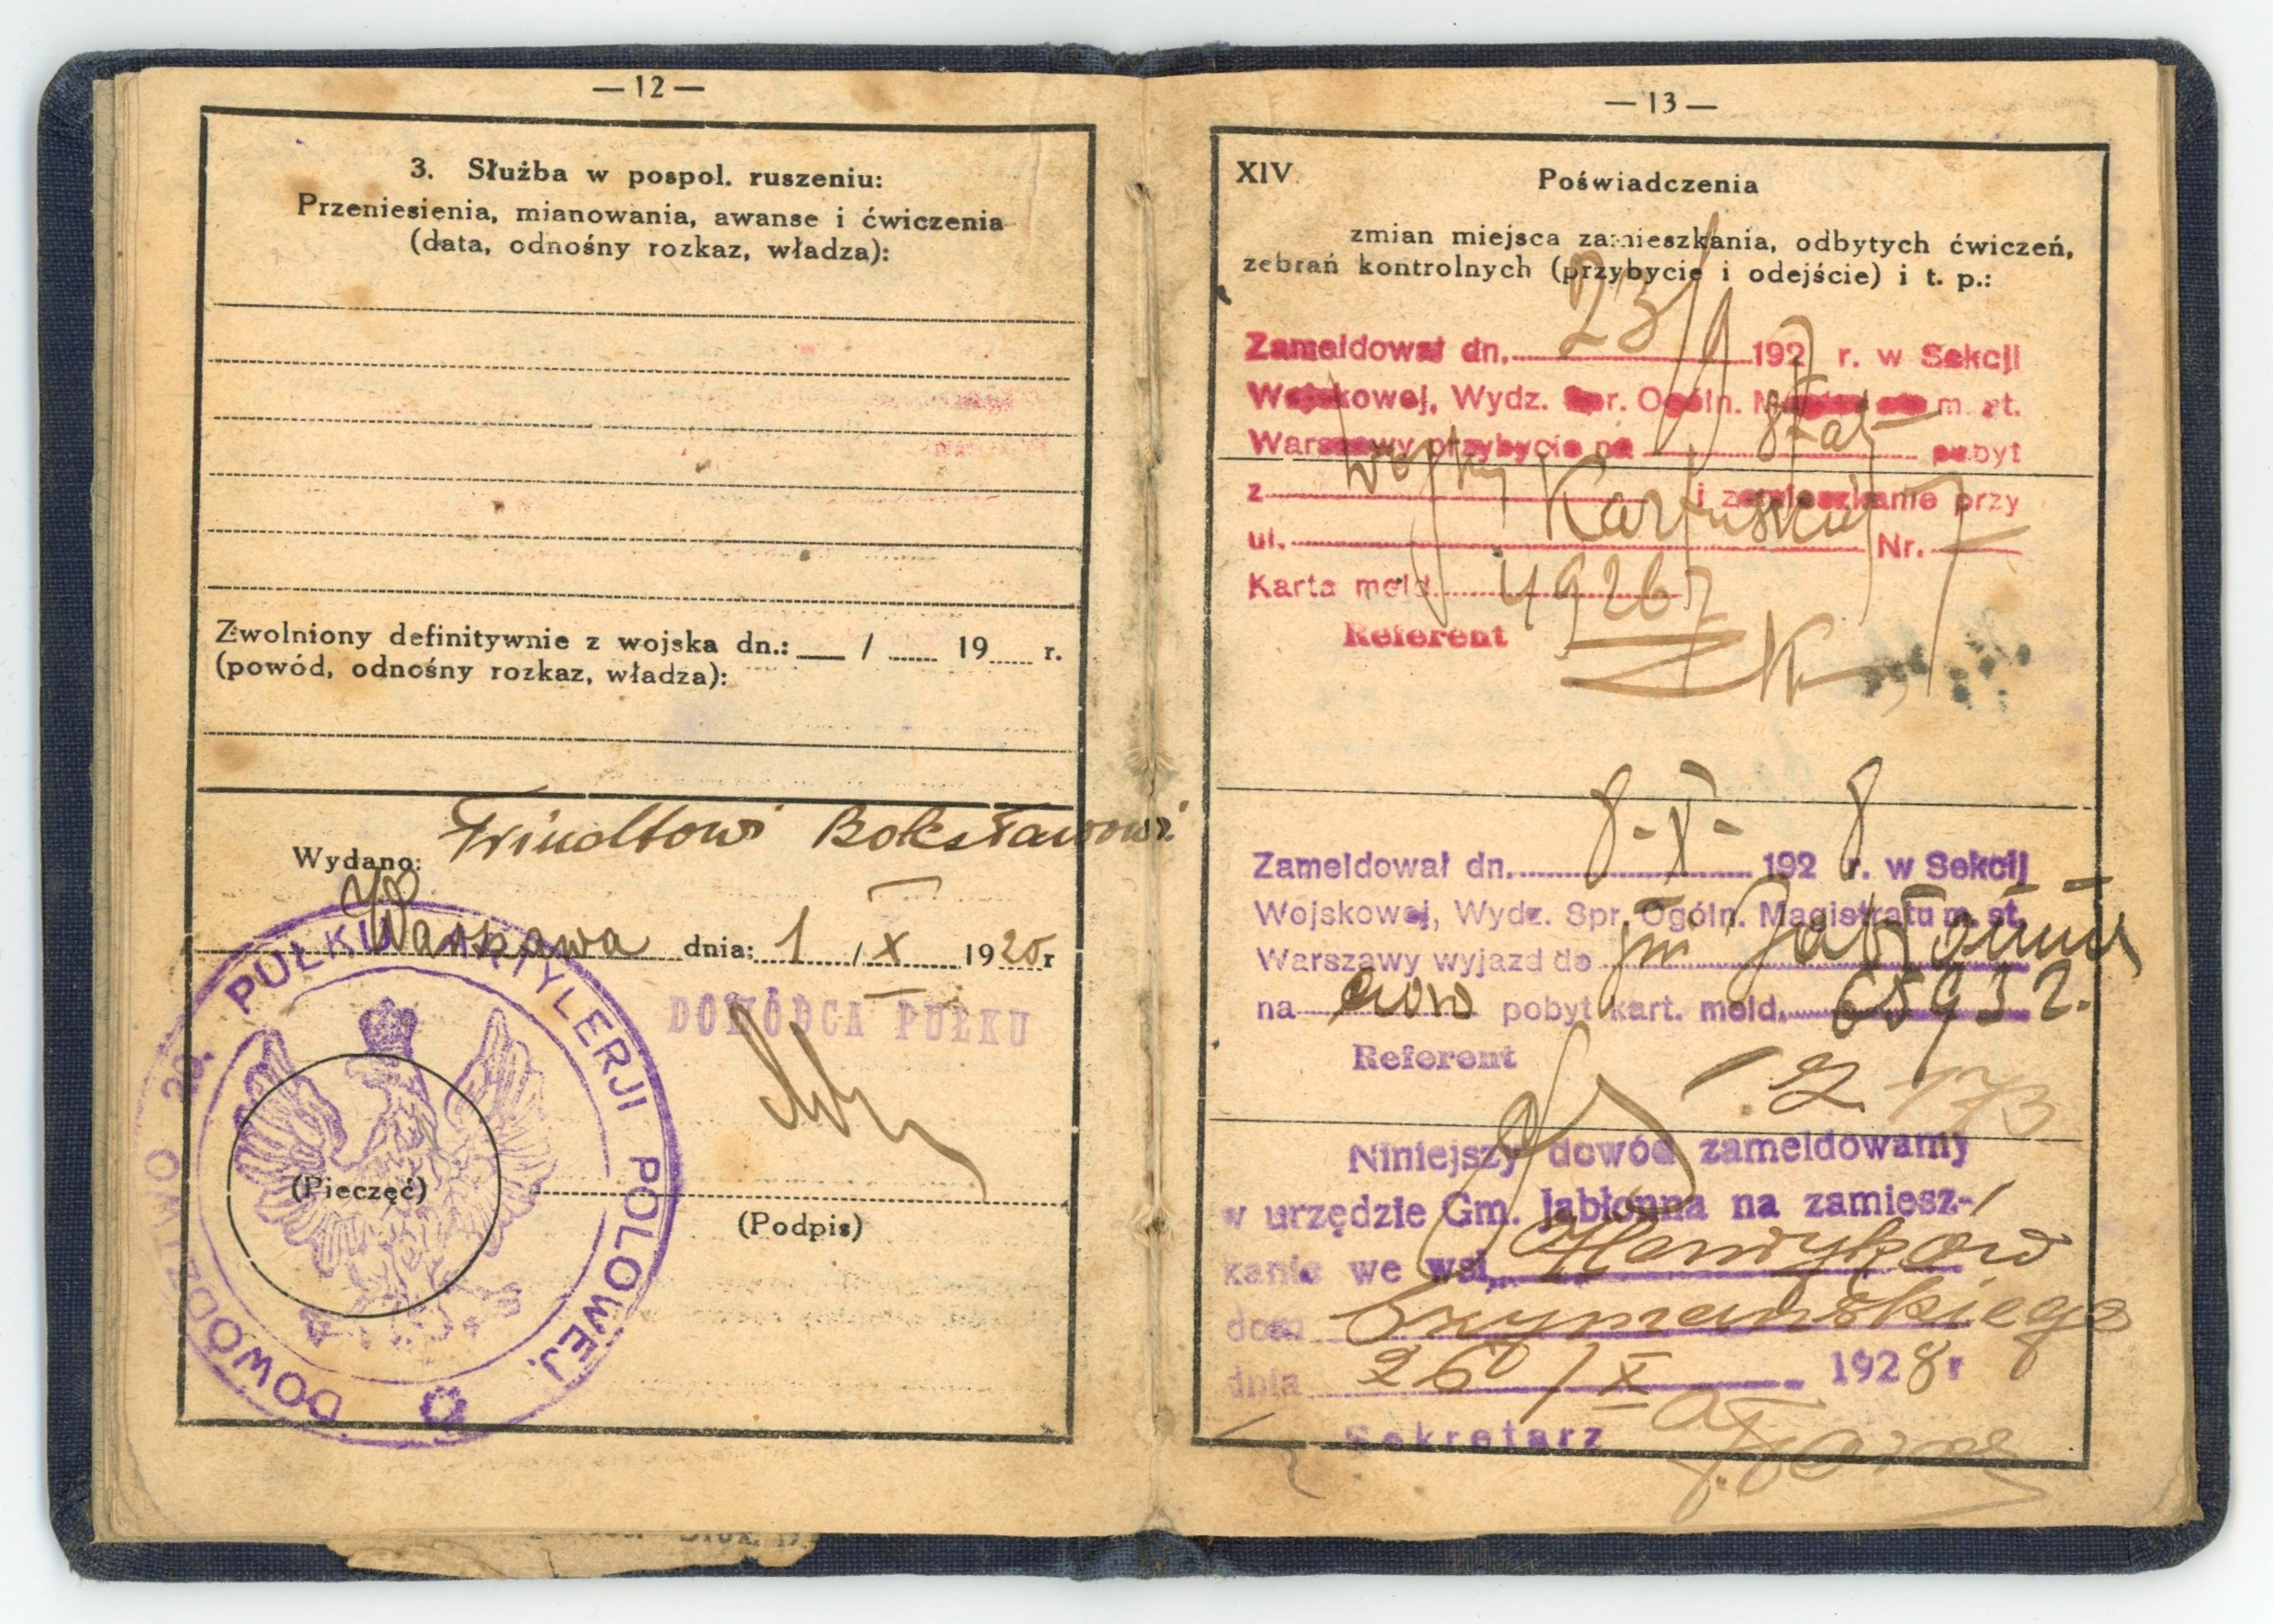 — 12 —
3. Służba w pospol. ruszeniu:
Przeniesienia, mianowania, awanse i ćwiczenia
(data, odnośny rozkaz, władza):
Zwolniony definitywnie z wojska dn.: / 19 r.
(powód, odnośny rozkaz, władza):
Wydano: Windtowi Bolesławowi
Warszawa dnia: 1 / X 1925 r
DOWÓDCA PUŁKU
DOWÓDZTWO PUŁKU ARTYLERJI POLOWEJ
(Pieczęć)
(Podpis)
— 13 —
XIV. Poświadczenia
zmian miejsca zamieszkania, odbytych ćwiczeń,
zebrań kontrolnych (przybycie i odejście) i t. p.:
Zameldował dn. 23/9 192 r. w Sekcji
Wojskowej, Wydz. Spr. Ogóln. Magistratu m. st.
Warszawy przybycie na stał pobyt
z wojska i zamieszkanie przy
ul. Kartuska Nr. 7
Karta meld. 49267
Referent
Zameldował dn. 8-X- 1928 r. w Sekcji
Wojskowej, Wydz. Spr. Ogóln. Magistratu m. st.
Warszawy wyjazd do gm Jabłonna
na pobyt kart. meld. 65932.
Referent
173
Niniejszy dowód zameldowany
w urzędzie Gm. Jabłonna na zamiesz-
kanie we wsi, Henryków
dom Szymańskiego
dnia 26 / X 1928 r
Sekretarz